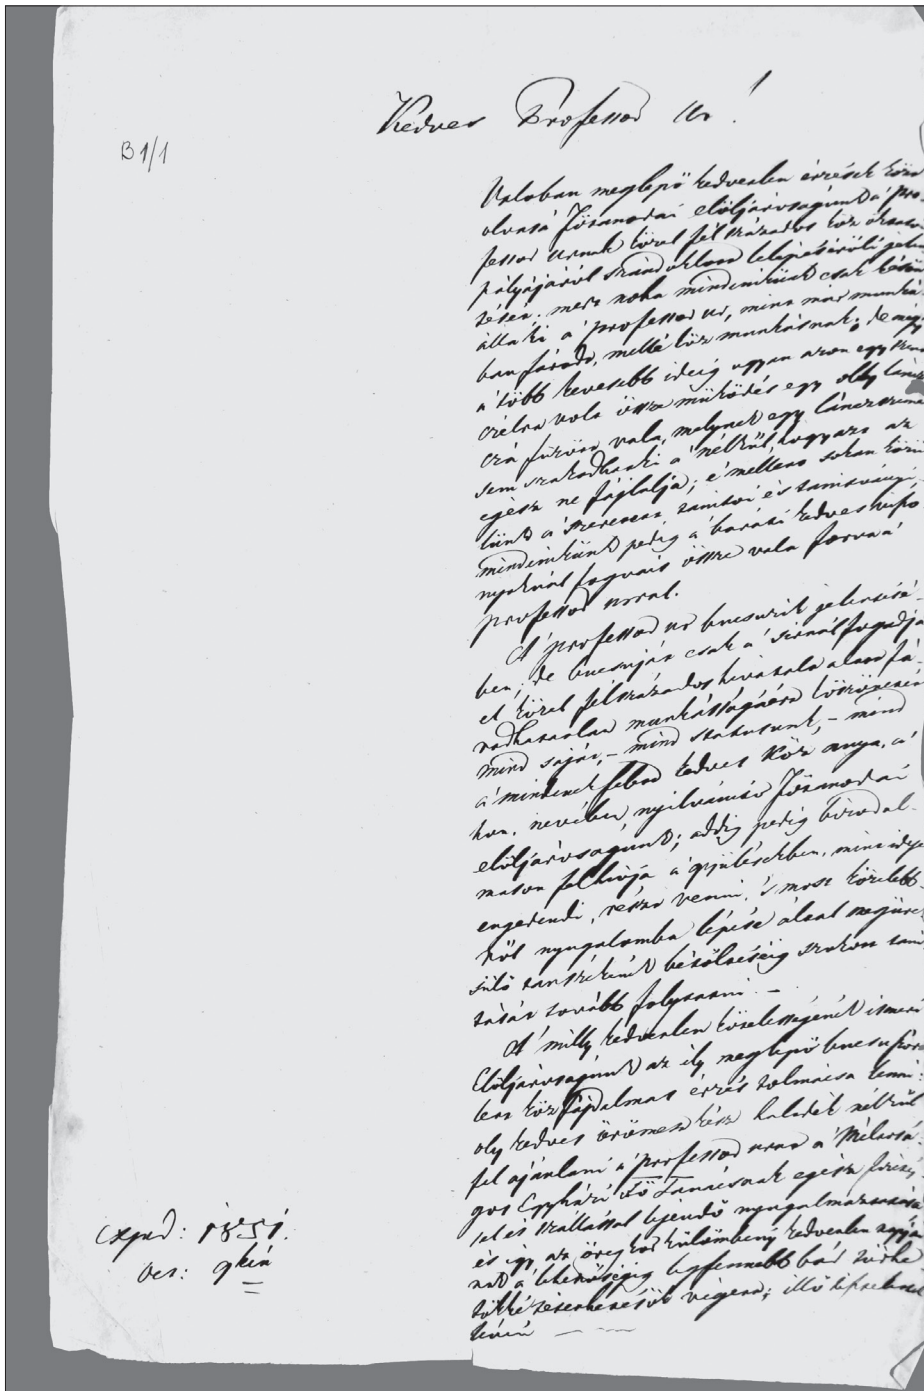 Kedves Professor Ur!
B 1/1
Valoban meglepö kedvetlen érzések közt
olvasá Fötanodai elöljáróságunk a' pro-
fessor urnak közel fél százados köz oktatói
pályájáról szándoklott lelépéséröli jelen
tését; mert noha mindenikünk csak késön
álla ki a' professor ur, mint már munká-
ban fáradt, mellé köz munkásnak; de még
a' több kevesebb ideig ugyan azon egy szent
czélra volt össze müködés egy olly láncz
czá füzött vala, melynek egy lánczszeme
sem szakadhat ki a' nélkül, hogy azt az
egész ne fájlalja; e' mellett sokan közü
lünk a' szerencsés tanitói és tanitványi,
mindenikünk pedig a' baráti kedves viszo
nyoknál fogvást össze vala forrva a'
professor urral.
A' professor ur bucsuzik jelentésé-
ben; de bucsuját csak a' sirnál fogadja
el közel félszázados hivatala alatt fá-
radhatatlan munkásságáért köszönetét
mind saját, – mind statusunk, – mind
a' mindenek felett kedves Köz anya, a'
hon, nevében nyilvánitó Fötanodai
elöljáróságunk; addig pedig bizodal-
masan felhivja a' gyülésekben, mint ideje
engedendi, részt venni, 's most közelebb
ről nyugalomba lépése által megüre
sülö tanszékének bétöltéséig szokott tani
tását tovább folytatni. –
A' milly kedvetlen kötelességének ismeri
Elöljáróságunk az ily meglepö bucsu
köz fájdalmas érzés tolmácsa lenni:
oly kedves örömest kész haladék nélkül
fel ajánlani a' professor urat a' Méltosá-
gos Egyházi Fö Tanácsnak egész fizetés
sel és szállással lejendö nyugalmaztatására
és igy az öregkor külömbeni kedvetlen
nak a' lehetöségig legfennebb
végett; illö tisztelettel
lévén
Exped: 1851.
Oct: 9kén